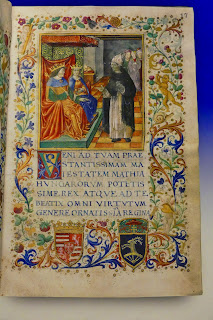 VENI AD TVAM PRAE
STANTISSIMAM MA
ESTATEM MATHIA
HVNGARORVM POTETIS
SIME REX ATQVE AD TE
BEATIX OMNI VIRTVTVM
GENERE ORNATISSIA REGINA